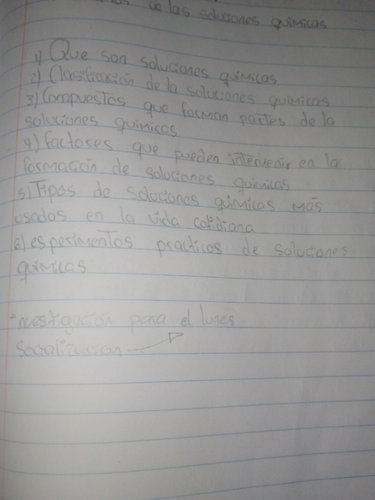 de las soluciones químicas
1) Que son soluciones químicas
2) Clasificación de la soluciones químicas
3) Compuestos que forman partes de la
soluciones químicas
4) factores que pueden intervenir en la
formación de soluciones químicas
5) Tipos de soluciones químicas más
usadas en la vida cotidiana
6) esperimentos practicos de soluciones
químicas
investigación para el lunes
Socialización